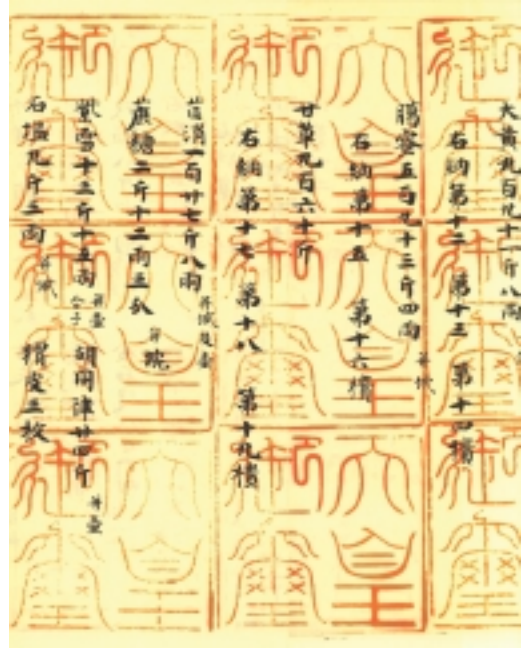 大黄九百九十一斤八両
右納第十二 第十三 第十四櫃
臈蜜五百九十三斤四両 并堝
右納第十五 第十六櫃
甘草九百六十斤
右納第十七 第十八 第十九櫃
芒消一百廿七斤八両 并堝及壺
蔗糖二斤十二両三分 并埦
紫雪十三斤十五両 并壺 合子 胡同律廿四斤 并壺
石塩九斤三両 并堝 猬皮五枚
天皇御璽